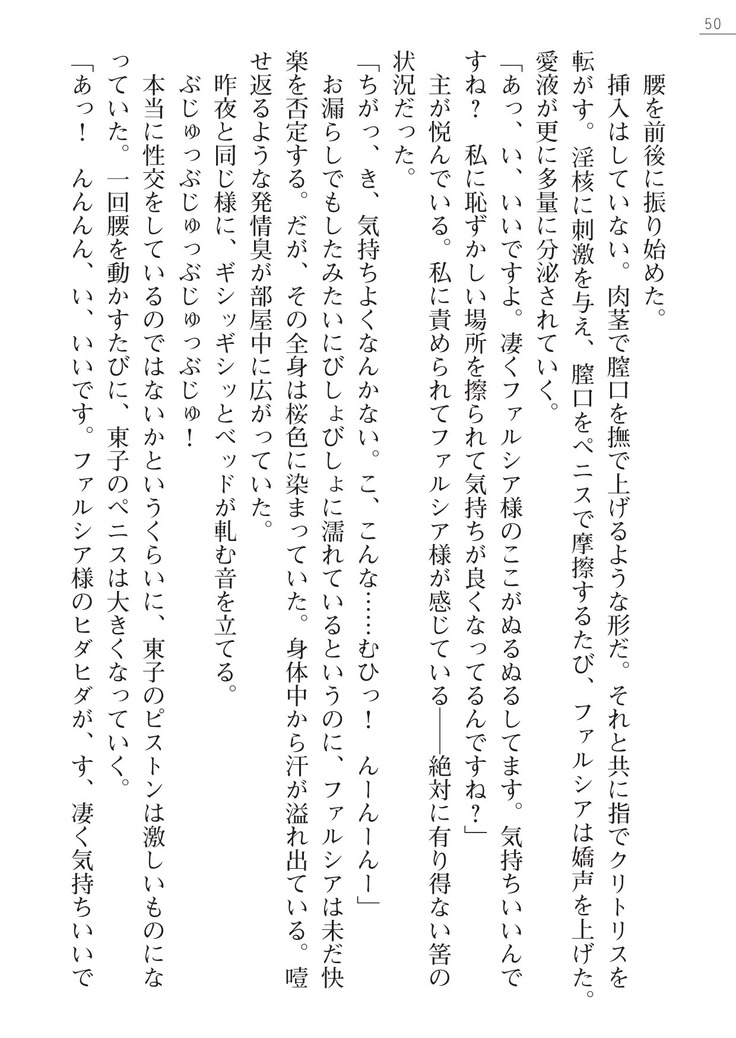 50
腰を前後に振り始めた。
挿入はしていない。肉茎で膣口を撫で上げるような形だ。それと共に指でクリトリスを
転がす。淫核に刺激を与え、膣口をペニスで摩擦するたび、ファルシアは嬌声を上げた。
愛液が更に多量に分泌されていく。
「あっ、い、いいですよ。凄くファルシア様のここがぬるぬるしてます。気持ちいいんで
すね？　私に恥ずかしい場所を擦られて気持ちが良くなってるんですね？」
主が悦んでいる。私に責められてファルシア様が感じている――絶対に有り得ない筈の
状況だった。
「ちがっ、き、気持ちよくなんかない。こ、こんな……むひっ！　んーんーんー」
お漏らしでもしたみたいにびしょびしょに濡れているというのに、ファルシアは未だ快
楽を否定する。だが、その全身は桜色に染まっていた。身体中から汗が溢れ出ている。噎
せ返るような発情臭が部屋中に広がっていた。
昨夜と同じ様に、ギシッギシッとベッドが軋む音を立てる。
ぶじゅっぶじゅっぶじゅっぶじゅ！
本当に性交をしているのではないかというくらいに、東子のピストンは激しいものにな
っていた。一回腰を動かすたびに、東子のペニスは大きくなっていく。
「あっ！　んんんん、い、いいです。ファルシア様のヒダヒダが、す、凄く気持ちいいで